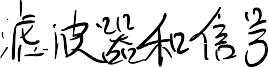 滤波器和信号